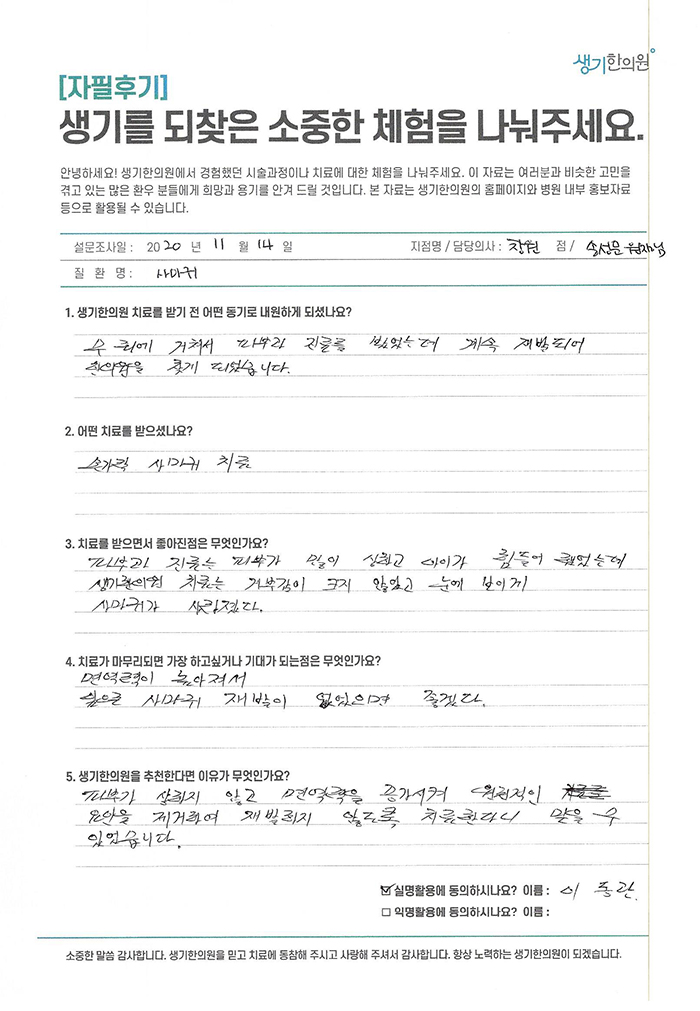 생기한의원
[자필후기]
생기를 되찾은 소중한 체험을 나눠주세요.
안녕하세요! 생기한의원에서 경험했던 시술과정이나 치료에 대한 체험을 나눠주세요. 이 자료는 여러분과 비슷한 고민을
겪고 있는 많은 환우 분들에게 희망과 용기를 안겨 드릴 것입니다. 본 자료는 생기한의원의 홈페이지와 병원 내부 홍보자료
등으로 활용될 수 있습니다.
설문조사일 : 2020 년 11 월 14 일 지점명 / 담당의사 : 창원 점 / 송성문 원장님
질 환 명 : 사마귀
1. 생기한의원 치료를 받기 전 어떤 동기로 내원하게 되셨나요?
수 회에 거쳐서 피부과 진료를 받았는데 계속 재발되어
한의원을 찾게 되었습니다.
2. 어떤 치료를 받으셨나요?
손가락 사마귀 치료
3. 치료를 받으면서 좋아진점은 무엇인가요?
피부과 치료는 피부가 많이 상하고 아이가 힘들어 했었는데
생기한의원 치료는 거부감이 크지 않았고 눈에 보이게
사마귀가 사라졌다.
4. 치료가 마무리되면 가장 하고싶거나 기대가 되는점은 무엇인가요?
면역력이 높아져서
앞으로 사마귀 재발이 없었으면 좋겠다.
5. 생기한의원을 추천한다면 이유가 무엇인가요?
피부가 상하지 않고 면역력을 증가시켜 원천적인
요인을 제거하여 재발하지 않도록 치료한다니 믿을 수
있었습니다.
☑ 실명활용에 동의하시나요? 이름 : 이 동관
□ 익명활용에 동의하시나요? 이름 :
소중한 말씀 감사합니다. 생기한의원을 믿고 치료에 동참해 주시고 사랑해 주셔서 감사합니다. 항상 노력하는 생기한의원이 되겠습니다.